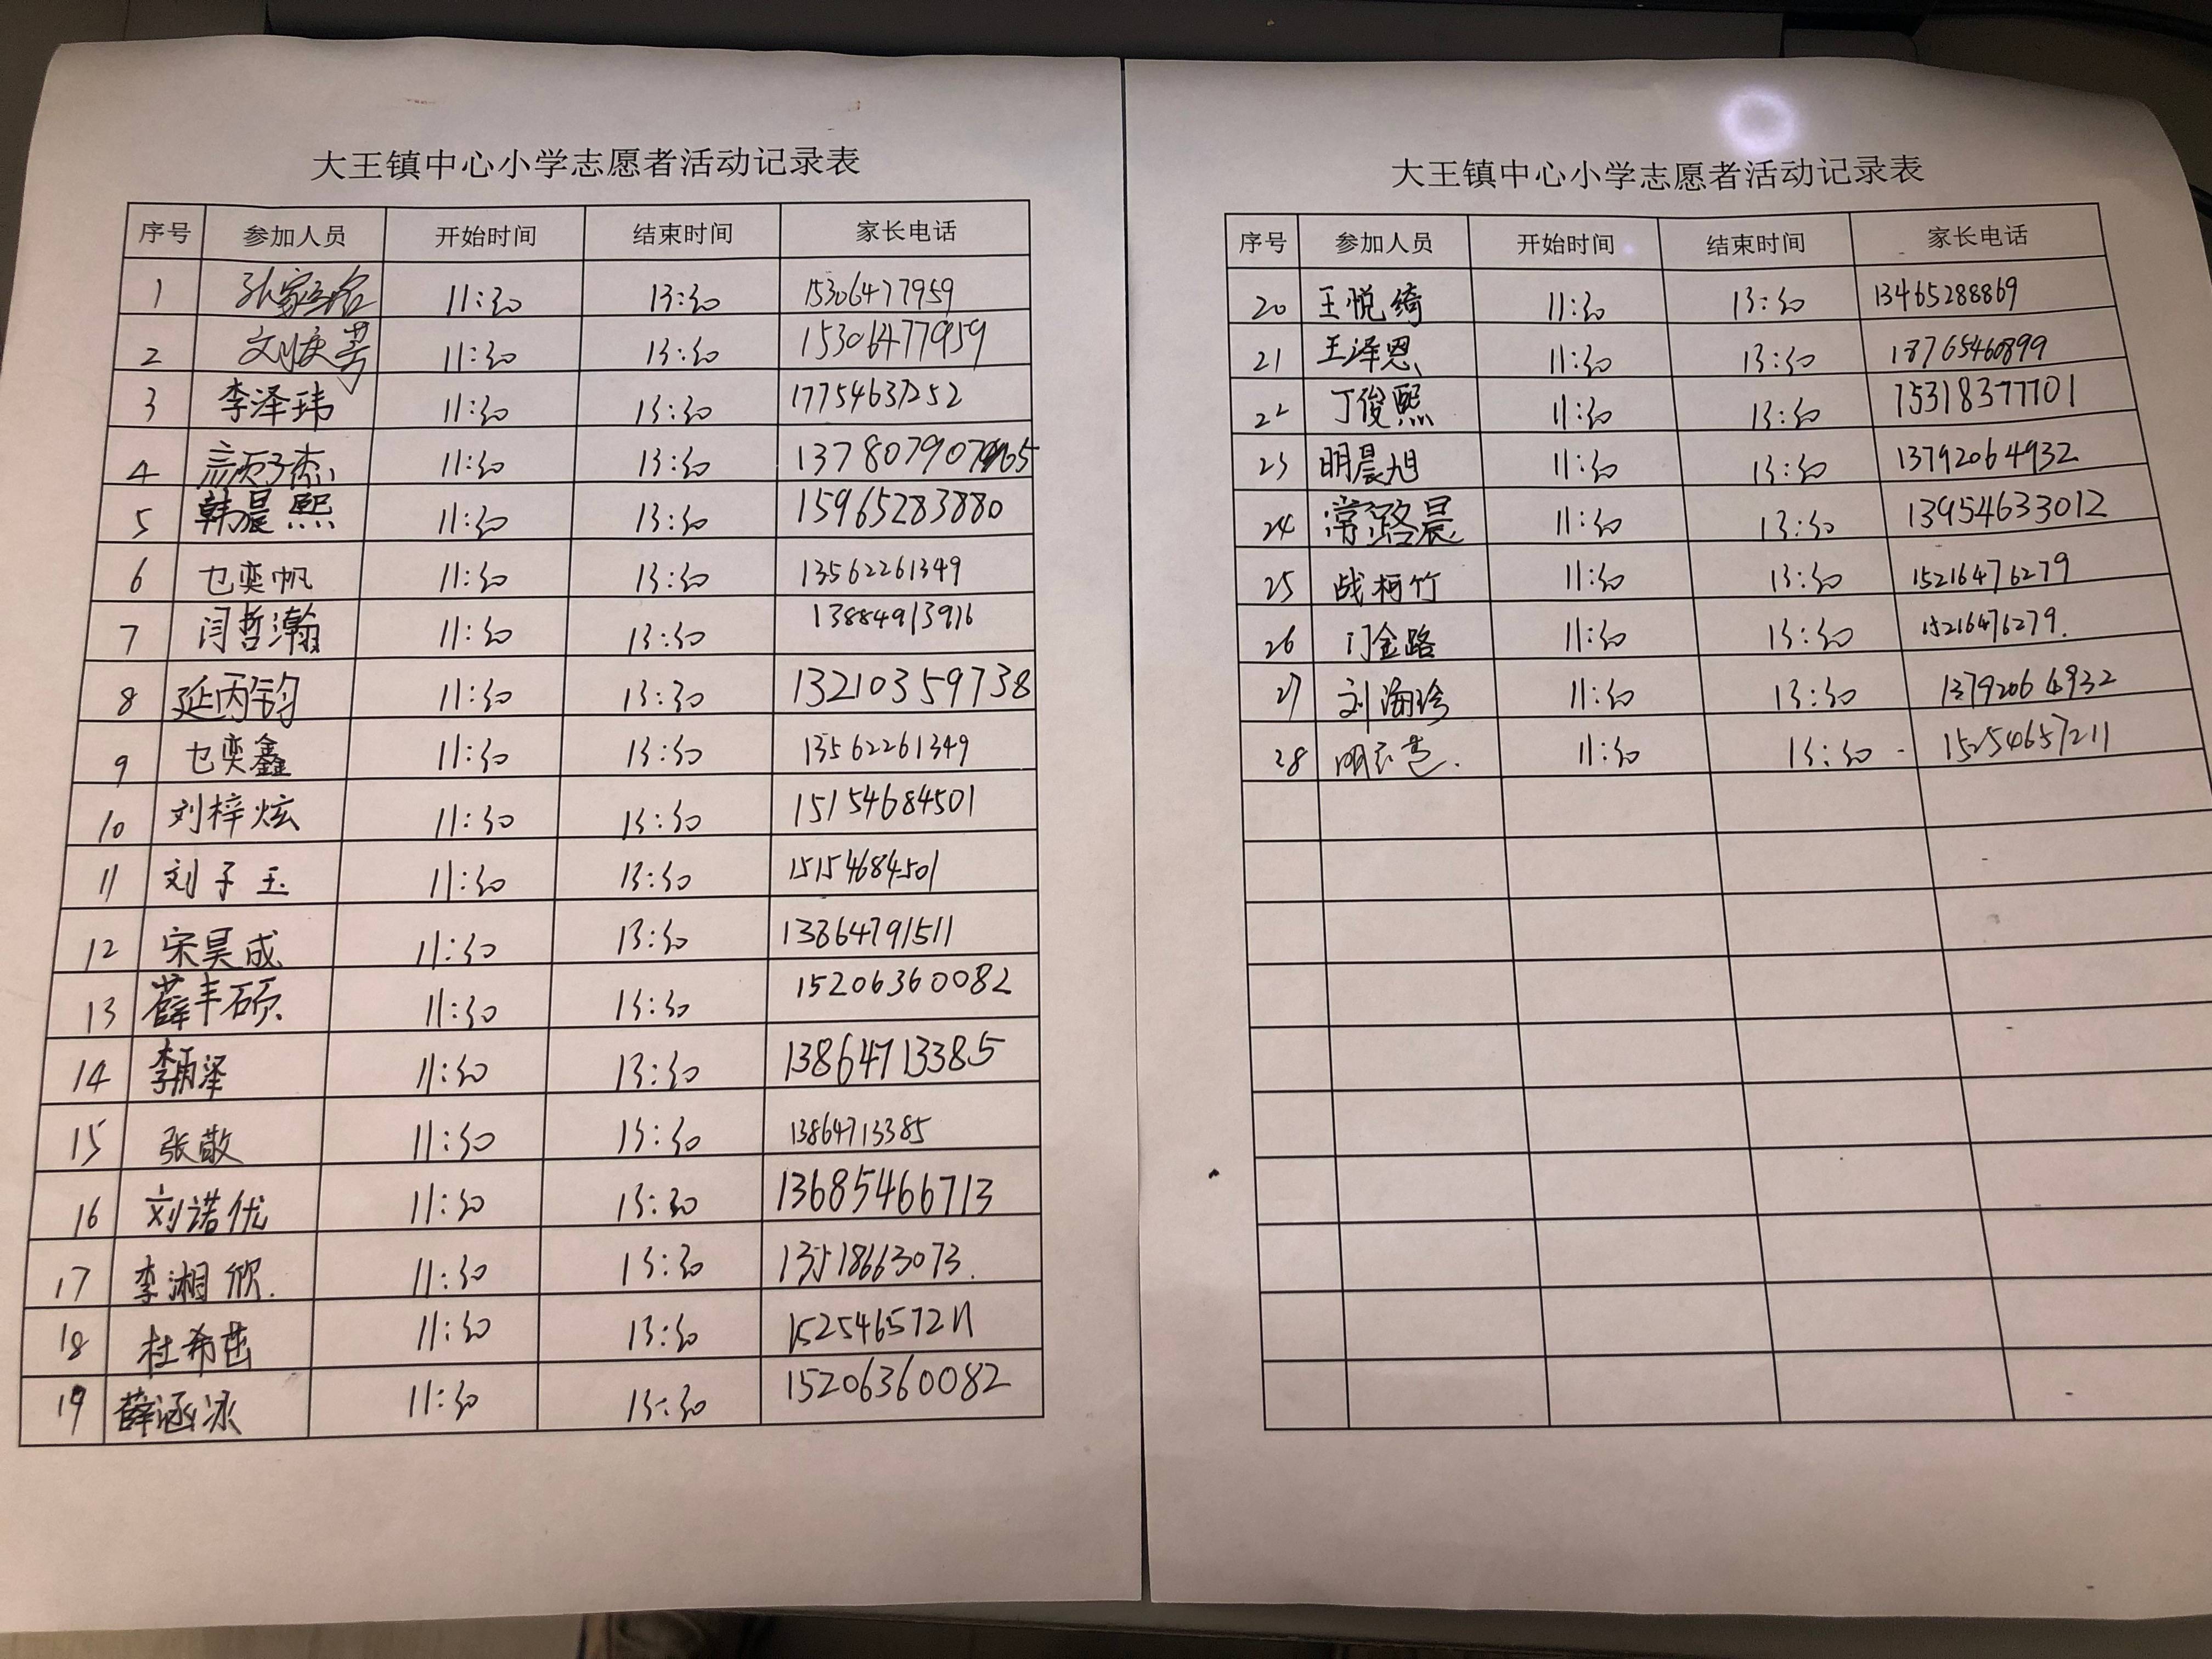 大王镇中心小学志愿者活动记录表
序号 参加人员 开始时间 结束时间 家长电话
1 张家铭 11:30 13:30 15306477959
2 刘庆芳 11:30 13:30 15306477959
3 李泽玮 11:30 13:30 17754637252
4 11:30 13:30
5 韩晨熙 11:30 13:30 15965283880
6 乜奕帆 11:30 13:30 13562261349
7 闫哲瀚 11:30 13:30 13884913916
8 延丙钧 11:30 13:30 13210359738
9 乜奕鑫 11:30 13:30 13562261349
10 刘梓炫 11:30 13:30 15154684501
11 刘子玉 11:30 13:30 15154684501
12 宋昊成 11:30 13:30 13864791511
13 薛丰硕 11:30 13:30 15206360082
14 李丙泽 11:30 13:30 13864713385
15 张敬 11:30 13:30 13864713385
16 刘诺优 11:30 13:30 13685466713
17 李湘欣. 11:30 13:30 13518663073.
18 杜希茁 11:30 13:30 15254657211
19 薛涵冰 11:30 13:30 15206360082
大王镇中心小学志愿者活动记录表
序号 参加人员 开始时间 结束时间 家长电话
20 王悦绮 11:30 13:30 13465288869
21 王泽恩 11:30 13:30 18765460899
22 丁俊熙 11:30 13:30 15318377701
23 明晨旭 11:30 13:30 13792064932
24 常路晨 11:30 13:30 13954633012
25 战柯竹 11:30 13:30 15216476279
26 门金路 11:30 13:30 15216476279.
27 刘海珍 11:30 13:30 13792064932
28 11:30 13:30 15254657211